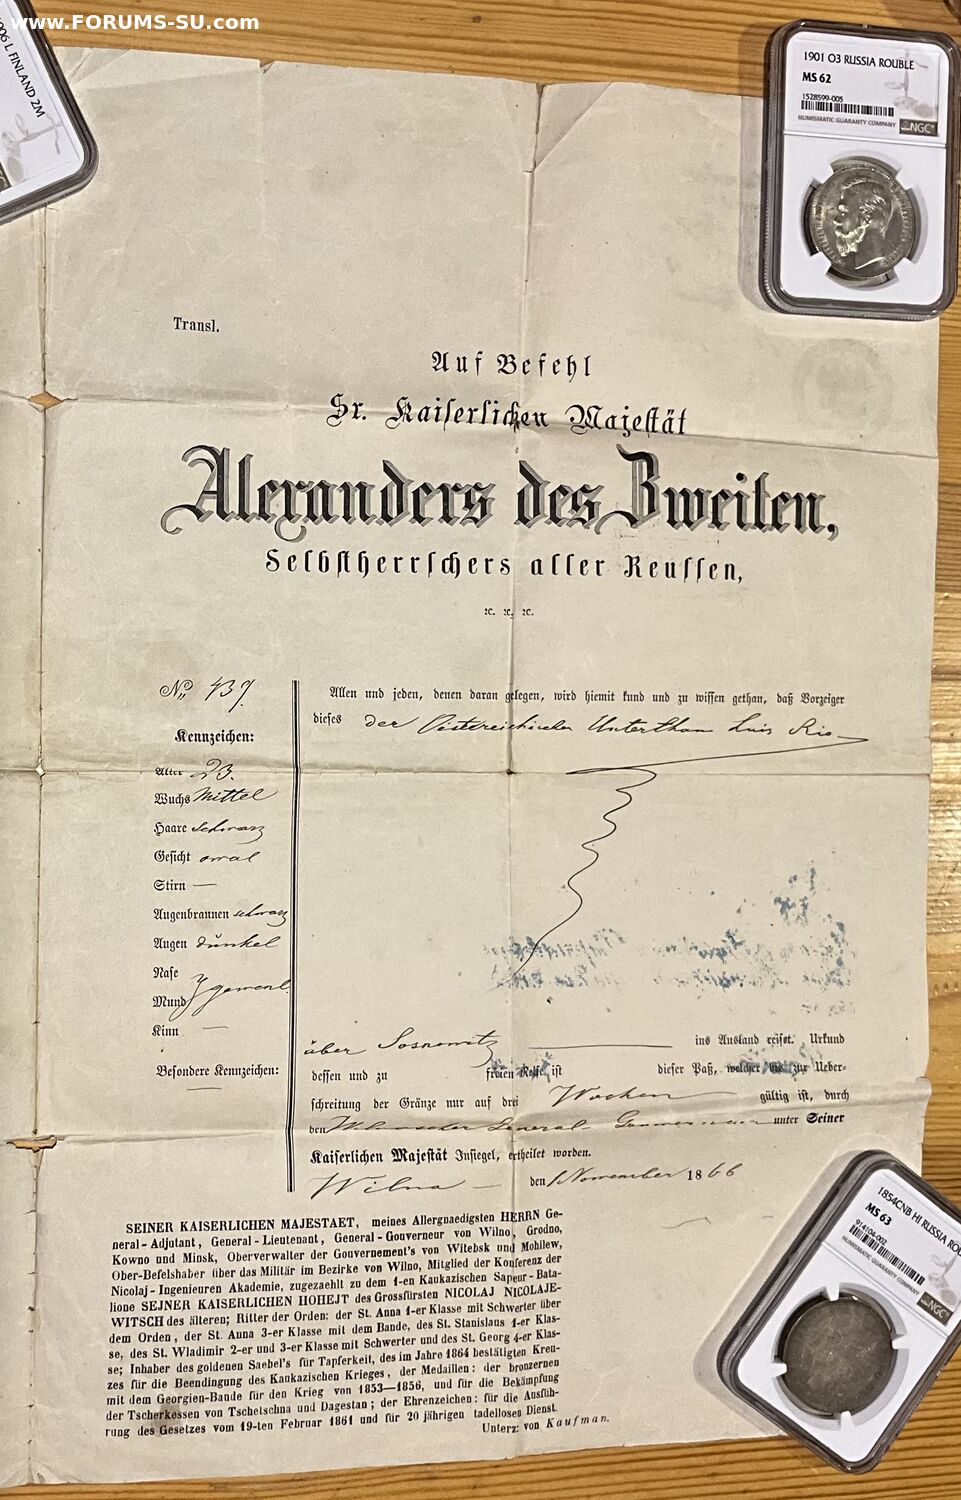 www.FORUMS-SU.com
006 L FINLAND 2M
1901 ФЗ RUSSIA ROUBLE
MS 62
1528599-005
NUMISMATIC GUARANTY COMPANY
NGC
Transl.
Auf Befehl
Sr. Kaiserlichen Majestät
Alexanders des Zweiten,
Selbstherrschers aller Reussen,
ꝛc. ꝛc. ꝛc.
No 437.
Kennzeichen:
Alter 23.
Wuchs Mittel
Haare schwarz
Gesicht oval
Stirn —
Augenbraunen schwarz
Augen dunkel
Nase
Mund
Kinn —
Besondere Kennzeichen:
Allen und jeden, denen daran gelegen, wird hiemit kund und zu wissen gethan, daß Vorzeiger
dieses der Oistereichischer Unterthan Luis
über Sosnowitz ins Ausland reiset. Urkund
dessen und zu freien Reise ist dieser Paß, welcher bis zur Ueber-
schreitung der Gränze nur auf drei Wochen gültig ist, durch
den General unter Seiner
Kaiserlichen Majestät Insiegel, ertheilet worden.
Wilna — den 1 November 1866
SEINER KAISERLICHEN MAJESTAET, meines Allergnaedigsten HERRN Ge-
neral-Adjutant, General-Lieutenant, General-Gouverneur von Wilno, Grodno,
Kowno und Minsk, Oberverwalter der Gouvernement's von Witebsk und Mohilew,
Ober-Befelshaber über das Militär im Bezirke von Wilno, Mitglied der Konferenz der
Nicolaj-Ingenieuren Akademie, zugezaehlt zu dem 1-en Kaukazischen Sapeur-Bata-
lione SEJNER KAISERLICHEN HOHEJT des Grossfürsten NICOLAJ NICOLAJE-
WITSCH des älteren; Ritter der Orden: der St. Anna 1-er Klasse mit Schwerter über
dem Orden, der St. Anna 3-er Klasse mit dem Bande, des St. Stanislaus 1-er Klas-
se, des St. Wladimir 2-er und 3-er Klasse mit Schwerter und des St. Georg 4-er Klas-
se; Inhaber des goldenen Saebel's für Tapferkeit, des im Jahre 1864 bestätigten Kreu-
zes für die Beendingung des Kaukazischen Krieges, der Medaillen: der bronzernen
mit dem Georgien-Bande für den Krieg von 1853—1856, und für die Bekämpfung
der Tscherkessen von Tschetschna und Dagestan; der Ehrenzeichen: für die Ausfüh-
rung des Gesetzes vom 19-ten Februar 1861 und für 20 jährigen tadellosen Dienst.
Unterz: von Kaufman.
1854CNB HI RUSSIA ROU
MS 63
914104-002
NUMISMATIC GUARANTY COMPANY
NGC